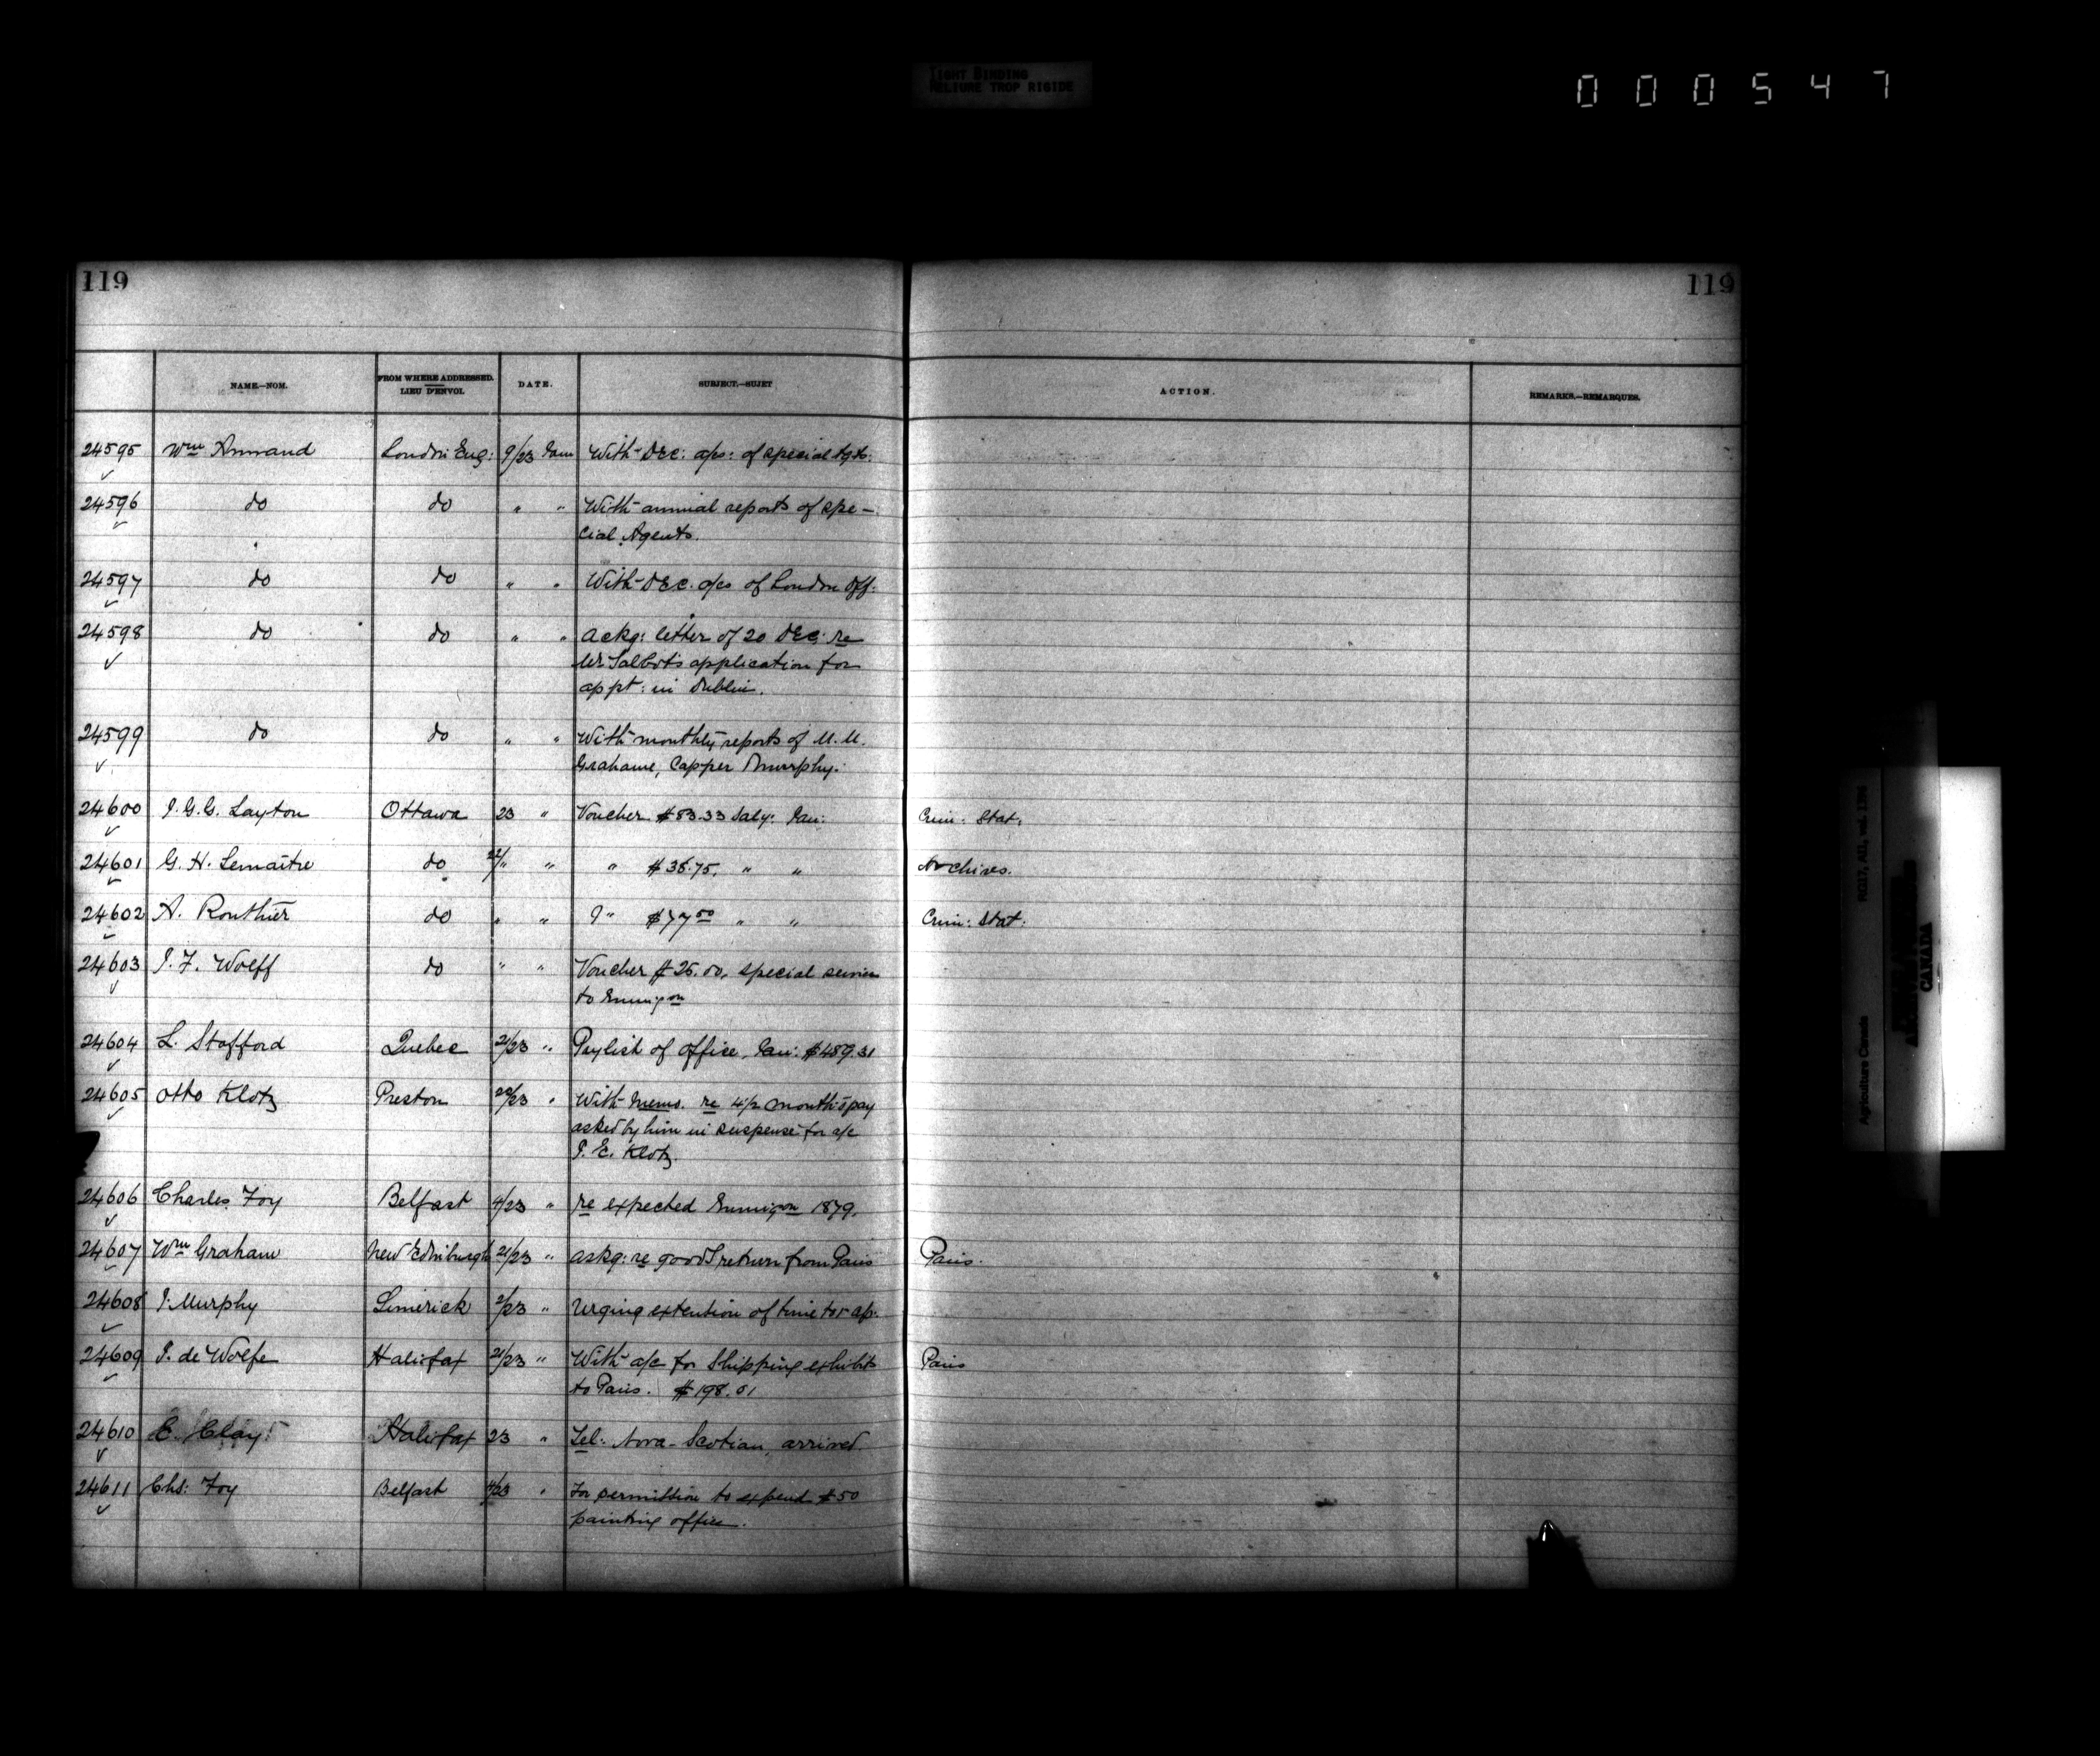 TIGHT BINDING
RELIURE TROP RIGIDE
000547
119 119
NAME.—NOM. FROM WHERE ADDRESSED. LIEU D'ENVOI. DATE. SUBJECT.—SUJET ACTION. REMARKS.—REMARQUES.
24595 Wm Annand London Eng: 9/23 Jan With Dec: a/cs: of special Agts:
24596 do do " " With annual reports of spe-
cial Agents.
24597 do do " " With Dec. a/cs of London Off:
24598 do do " " Ackg: letter of 20 Dec: re
Mr Talbot's application for
appt: in Dublin.
24599 do do " " With monthly reports of M.M.
Grahame, Capper & Murphy.
24600 J. G. G. Layton Ottawa 23 " Voucher $83.33 Saly: Jan: Crim: Stat:
24601 G. H. Lemaître do 22/" " " $38.75. " " Archives.
24602 A. Routhier do " " " $77 50 " " Crim: Stat:
24603 J. F. Wolff do " " Voucher $25.00, special services
to Emmigon
24604 L. Stafford Quebec 21/23 " Paylist of office, Jan: $489.31
24605 Otto Klotz Preston 22/23 " With memo. re 4½ month's pay
asked by him in suspense for a/c
J. E. Klotz
24606 Charles Foy Belfast 4/23 " re expected Emmigon 1879.
24607 Wm Graham New Edinburgh 21/23 " askg: re goods return from Paris Paris.
24608 J. Murphy Limerick 2/23 " Urging extention of time for ap:
24609 J. de Wolfe Halifax 21/23 " With a/c for Shipping exhibits Paris
to Paris. $198.01
24610 E. Clay Halifax 23 " Tel: Nova-Scotian, arrived
24611 Chs: Foy Belfast 4/23 " For permission to expend $50
painting office.
Agriculture Canada RG17, AII, vol. 1396
CANADA